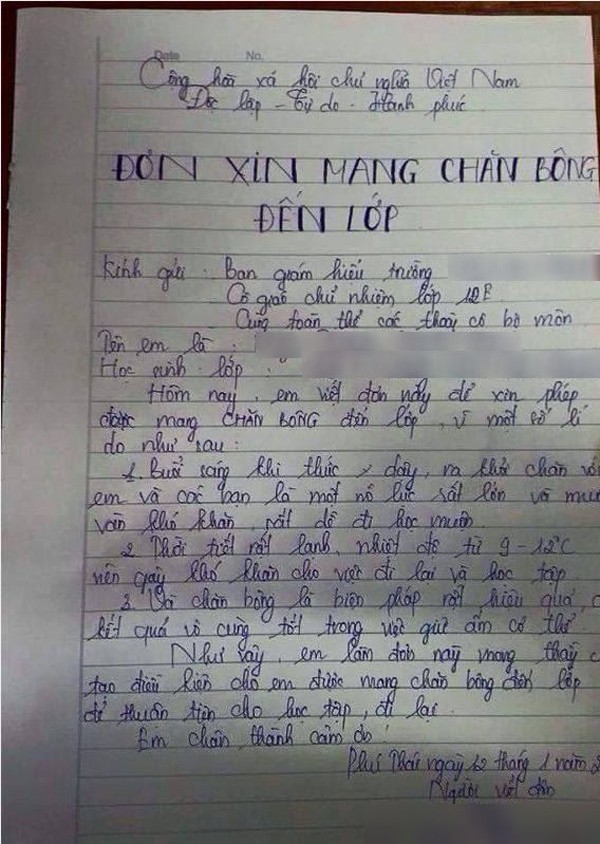 Date No.
Cộng hoà xã hội chủ nghĩa Việt Nam
Độc lập - Tự do - Hạnh phúc
ĐƠN XIN MANG CHĂN BÔNG
ĐẾN LỚP
Kính gửi : Ban giám hiệu trường
Cô giáo chủ nhiệm lớp 12E
Cùng toàn thể các thầy cô bộ môn
Tên em là :
Học sinh lớp :
Hôm nay, em viết đơn nầy để xin phép
được mang CHĂN BÔNG đến lớp, vì một số lí
do như sau :
1. Buổi sáng khi thức dậy, ra khỏi chăn
em và các bạn là một nỗ lực rất lớn và
vàn khó khăn, rất dễ đi học muộn.
2. Thời tiết rất lạnh, nhiệt độ từ 9 - 12°C
nên gây khó khăn cho việc đi lại và học tập
3. Và chăn bông là biện pháp rất hiệu quả,
kết quả vô cùng tốt trong việc giữ ấm cơ thể
Như vậy, em làm đơn này mong thầy
tạo điều kiện cho em được mang chăn bông đến lớp
để thuận tiện cho học tập, đi lại.
Em chân thành cảm ơn!
Phú Thái ngày 12 tháng 1 năm
Người viết đơn